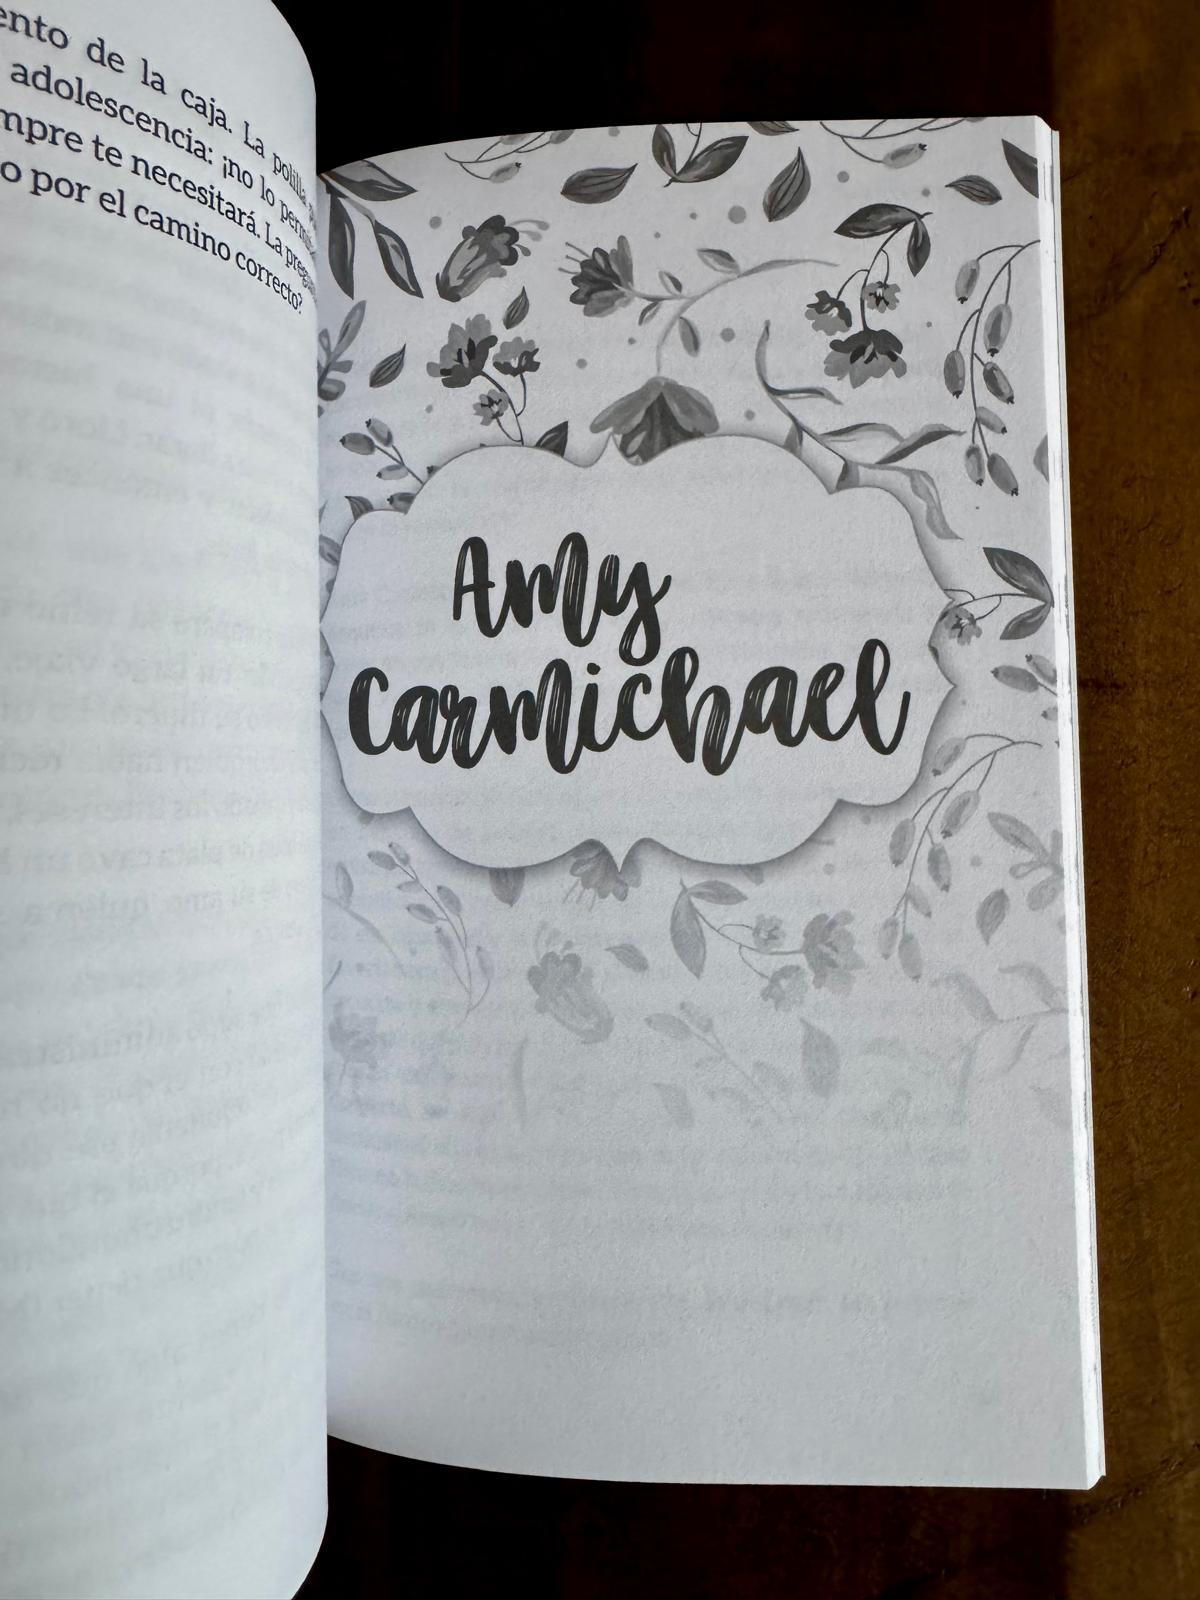 ento de la caja. La polilla
adolescencia: ¡no lo
mpre te necesitará. La
o por el camino correcto?
Amy
Carmichael